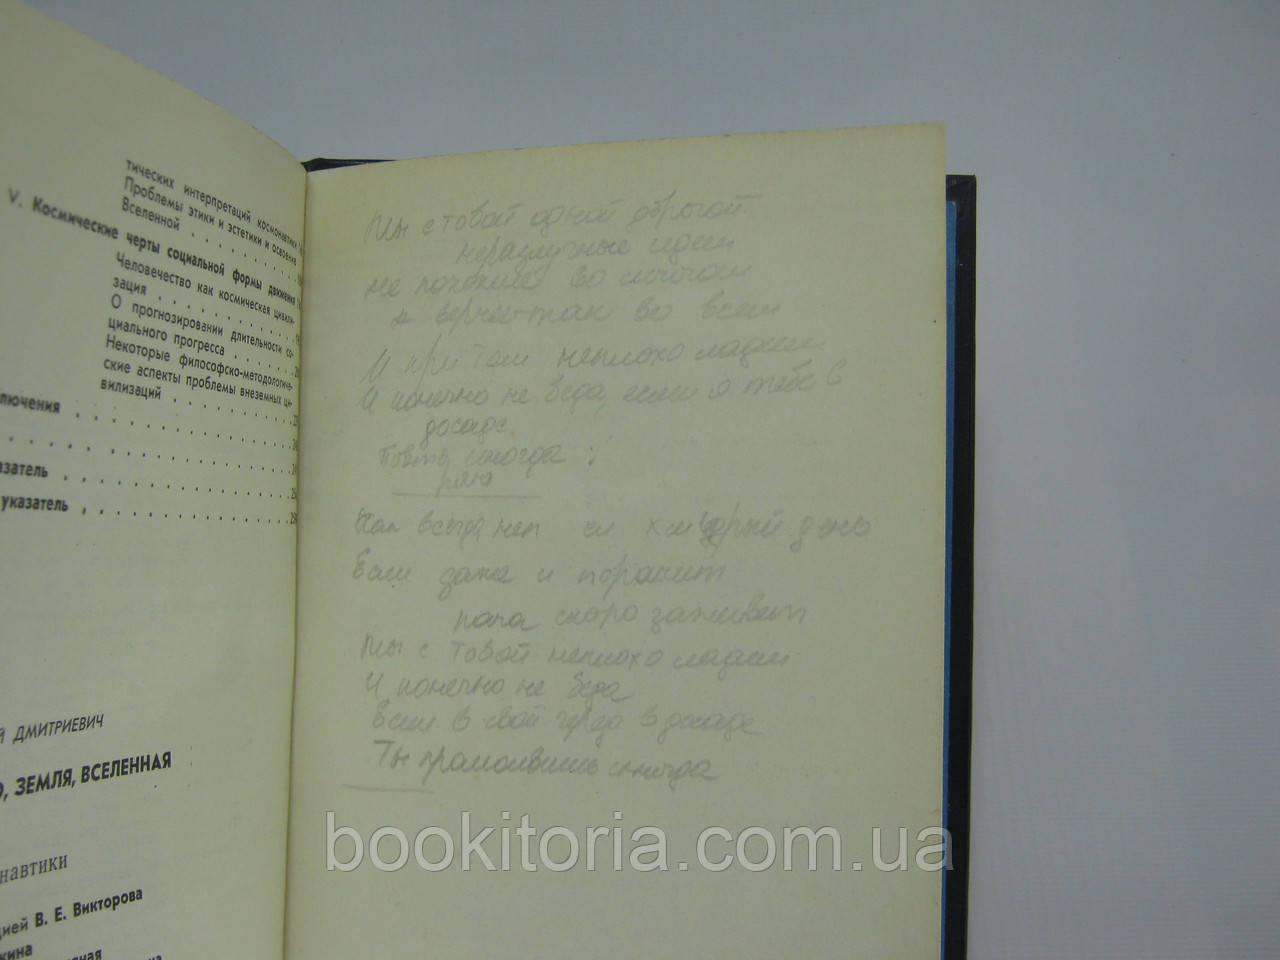 тических интерпретаций космонавтики
Проблемы этики и эстетики и освоение
Вселенной . . . . . . . .
V. Космические черты социальной формы движения
Человечество как космическая цивили-
зация . . . . . . . . . .
О прогнозировании длительности со-
циального прогресса . . . . .
Некоторые философско-методологиче-
ские аспекты проблемы внеземных ци-
вилизаций . . . . . . . .
лючения . . . . . . . . . .
. . . . . . . . . . . .
азатель . . . . . . . . . .
указатель . . . . . . . . .
Й ДМИТРИЕВИЧ
О, ЗЕМЛЯ, ВСЕЛЕННАЯ
навтики
цией В. Е. Викторова
кина
Мы с тобой одной дорогой
неразлучные идем
не похожие во многом
и вернее так во всем
И при том неплохо ладим
И конечно не беда, если я тебе в
досаде
иногда :
Как всегда нет хмурый день
Если даже и поранит
рана скоро заживет
Мы с тобой неплохо ладим
И конечно не беда
Если в свой черед в досаде
Ты промолвишь иногда
bookitoria.com.ua